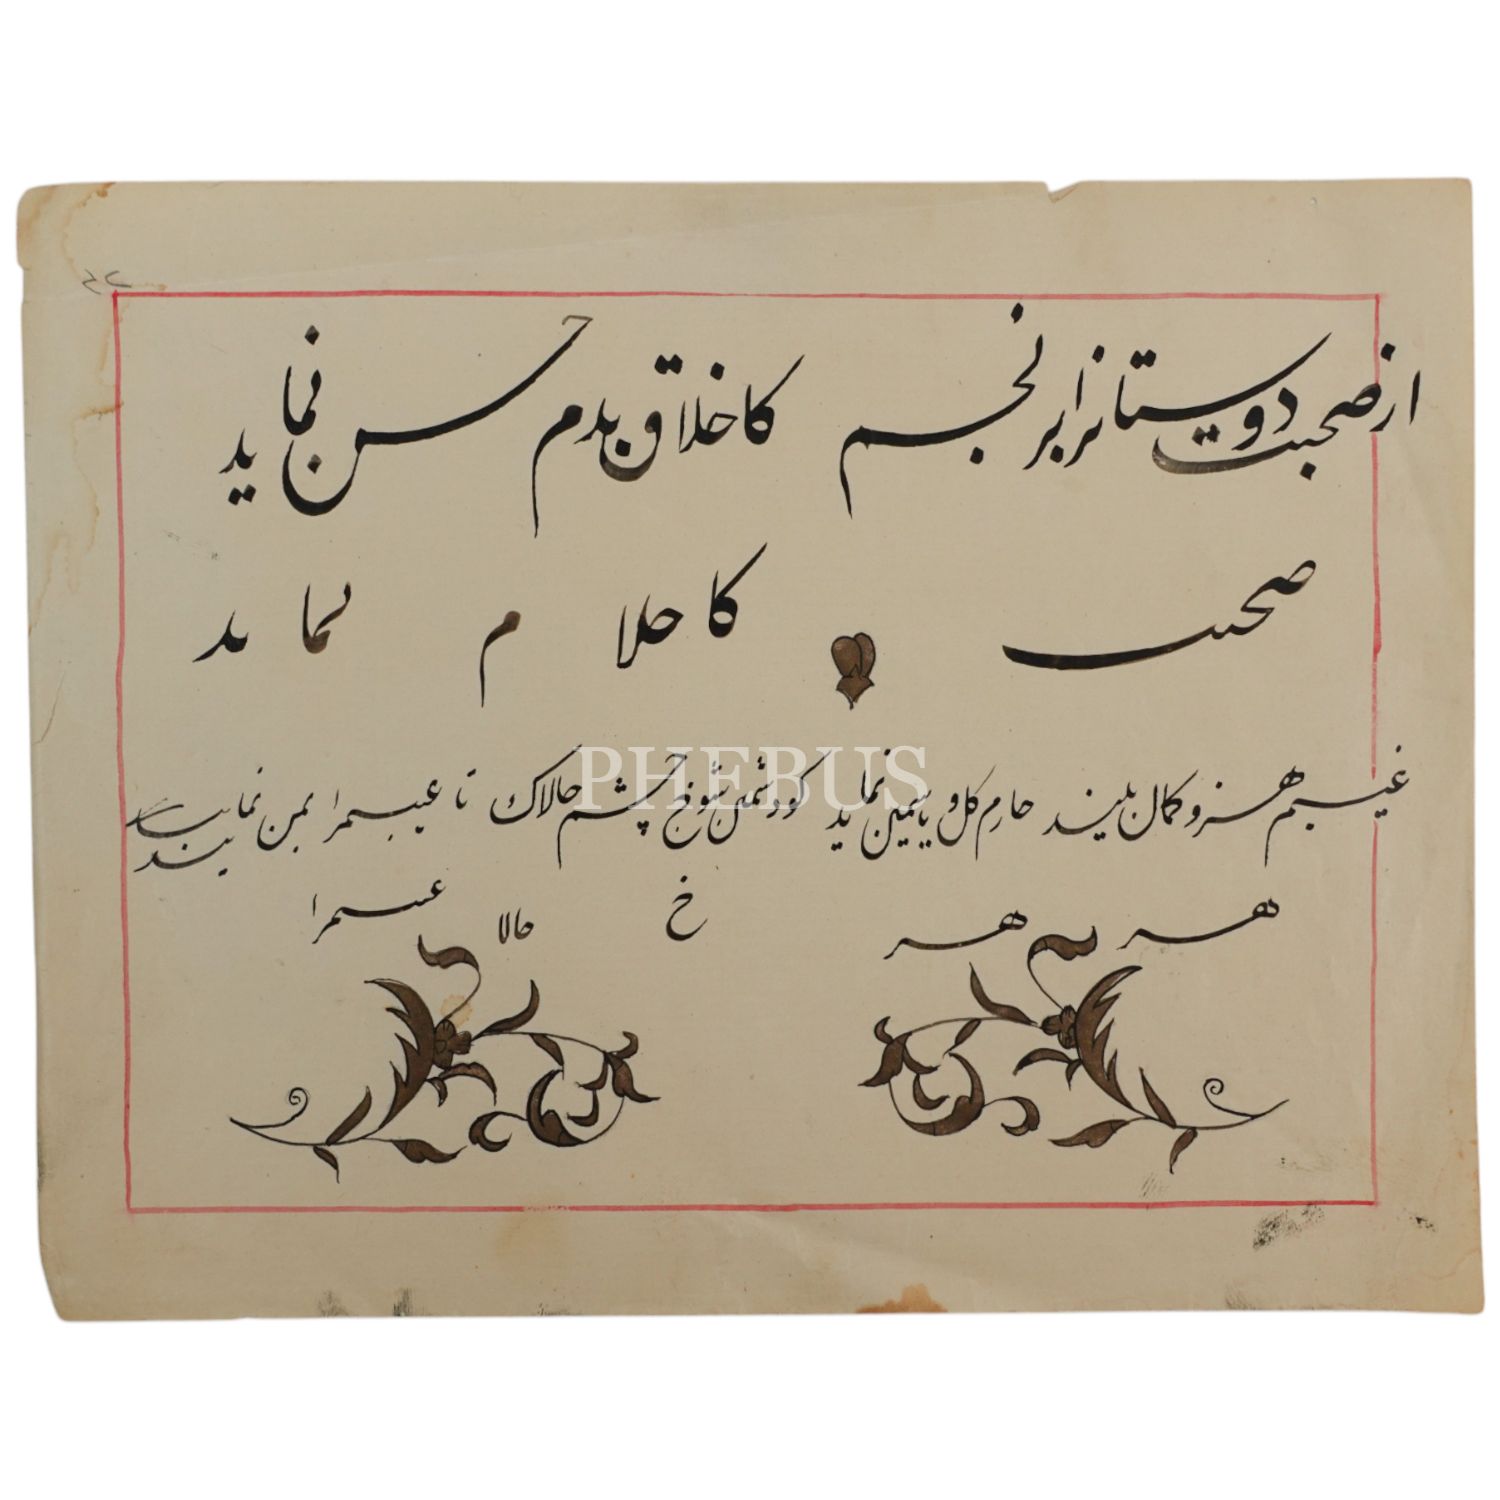 از صحبت دوستان برنجم کاخلاق بدم حسن نماید
صحبت کا حلا م نما ید
عیبم هنر و کمال بیند خارم گل و یاسمین نماید کو دشمن شوخ چشم چالاک تا عیب مرا بمن نماید
هنر هنر خ حالا عیب مرا
PHEBUS